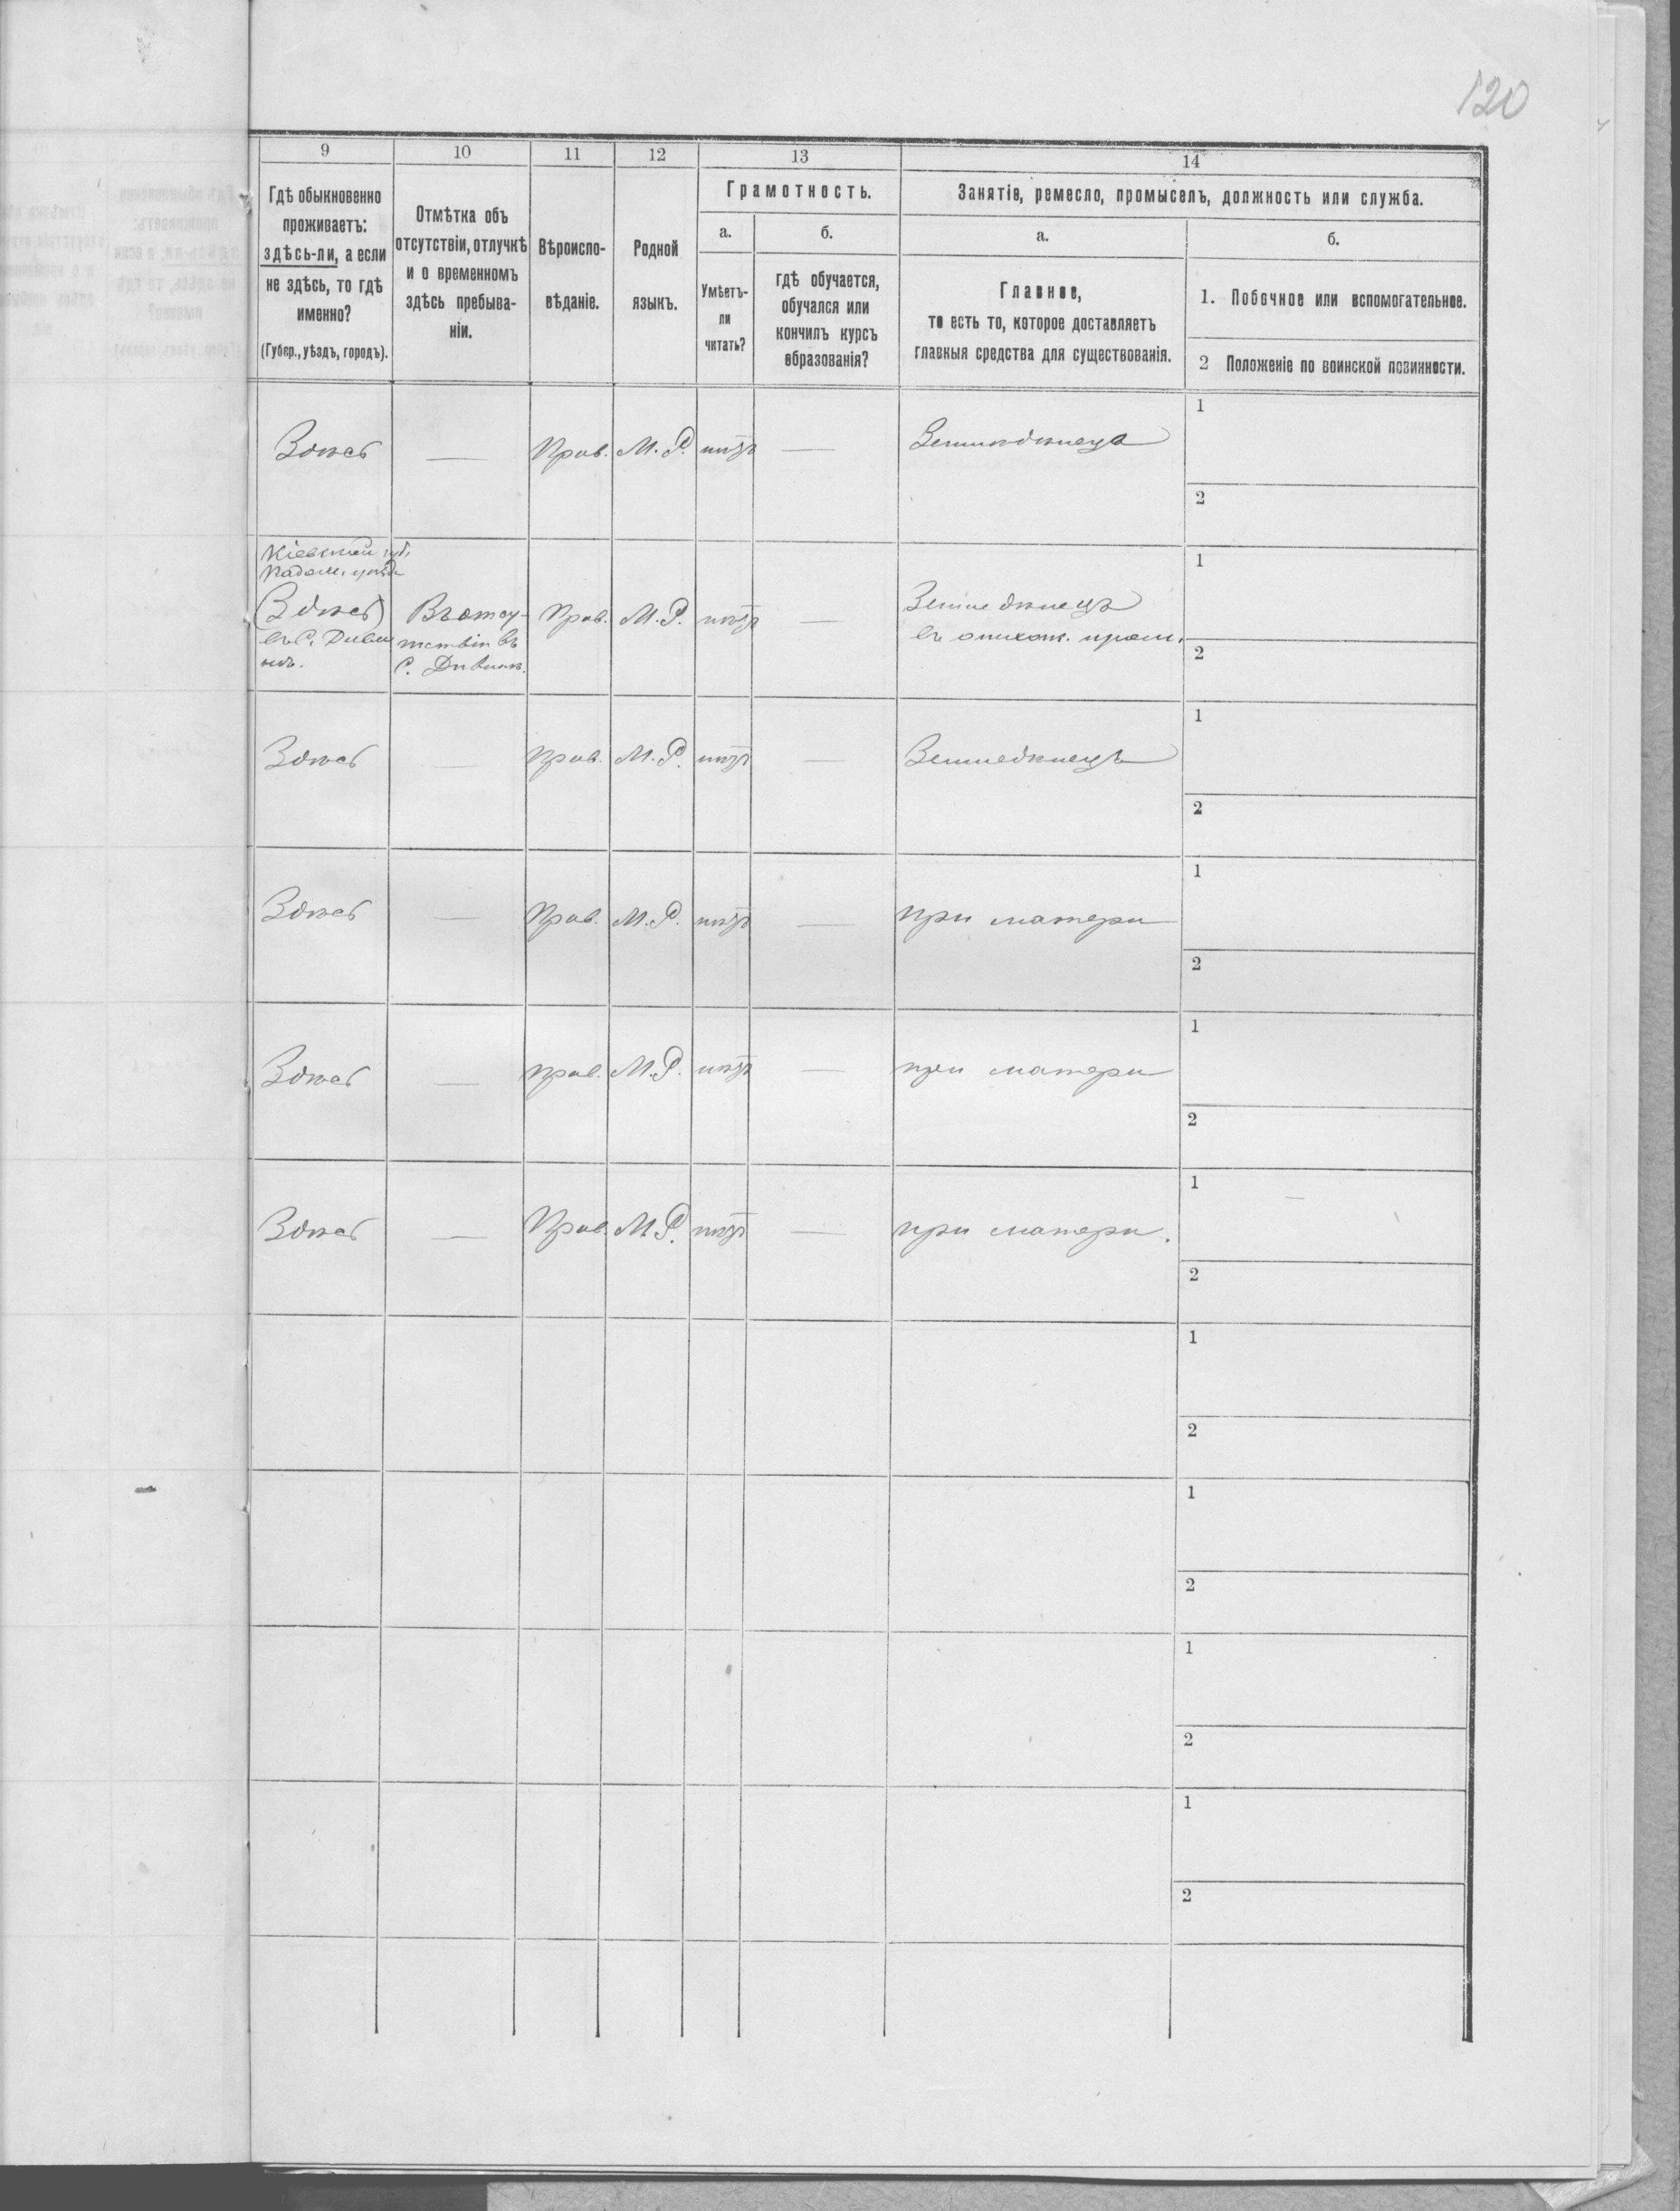 120
9 10 11 12 13 14
Гдѣ обыкновенно
проживаетъ:
здѣсь-ли, а если
не здѣсь, то гдѣ
именно?
(Губер., уѣздъ, городъ).
Отмѣтка объ
отсутствіи, отлучкѣ
и о временномъ
здѣсь пребыва-
ніи.
Вѣроиспо-
вѣданіе.
Родной
языкъ.
Грамотность.
а.
Умѣетъ-
ли
читать?
б.
гдѣ обучается,
обучался или
кончилъ курсъ
образованія?
Занятіе, ремесло, промыселъ, должность или служба.
а.
Главное,
то есть то, которое доставляетъ
главныя средства для существованія.
б.
1. Побочное или вспомогательное.
2 Положеніе по воинской повинности.
Здѣсь — Прав. М. Р. нѣтъ — Земледѣлецъ 1
2
Кіевской губ.
Радом. уѣзд
(Здѣсь)
въ С. Дивин
нѣ.
Въ отсу-
тствіи въ
С. Дивинѣ.
Прав. М. Р. нѣтъ —
Земледѣлецъ
въ отхож. пром.
1
2
Здѣсь — Прав. М. Р. нѣтъ — Земледѣлецъ 1
2
Здѣсь — Прав. М. Р. нѣтъ — при матери 1
2
Здѣсь — Прав. М. Р. нѣтъ — при матери 1
2
Здѣсь — Прав. М. Р. нѣтъ — при матери. 1 —
2
1
2
1
2
1
2
1
2